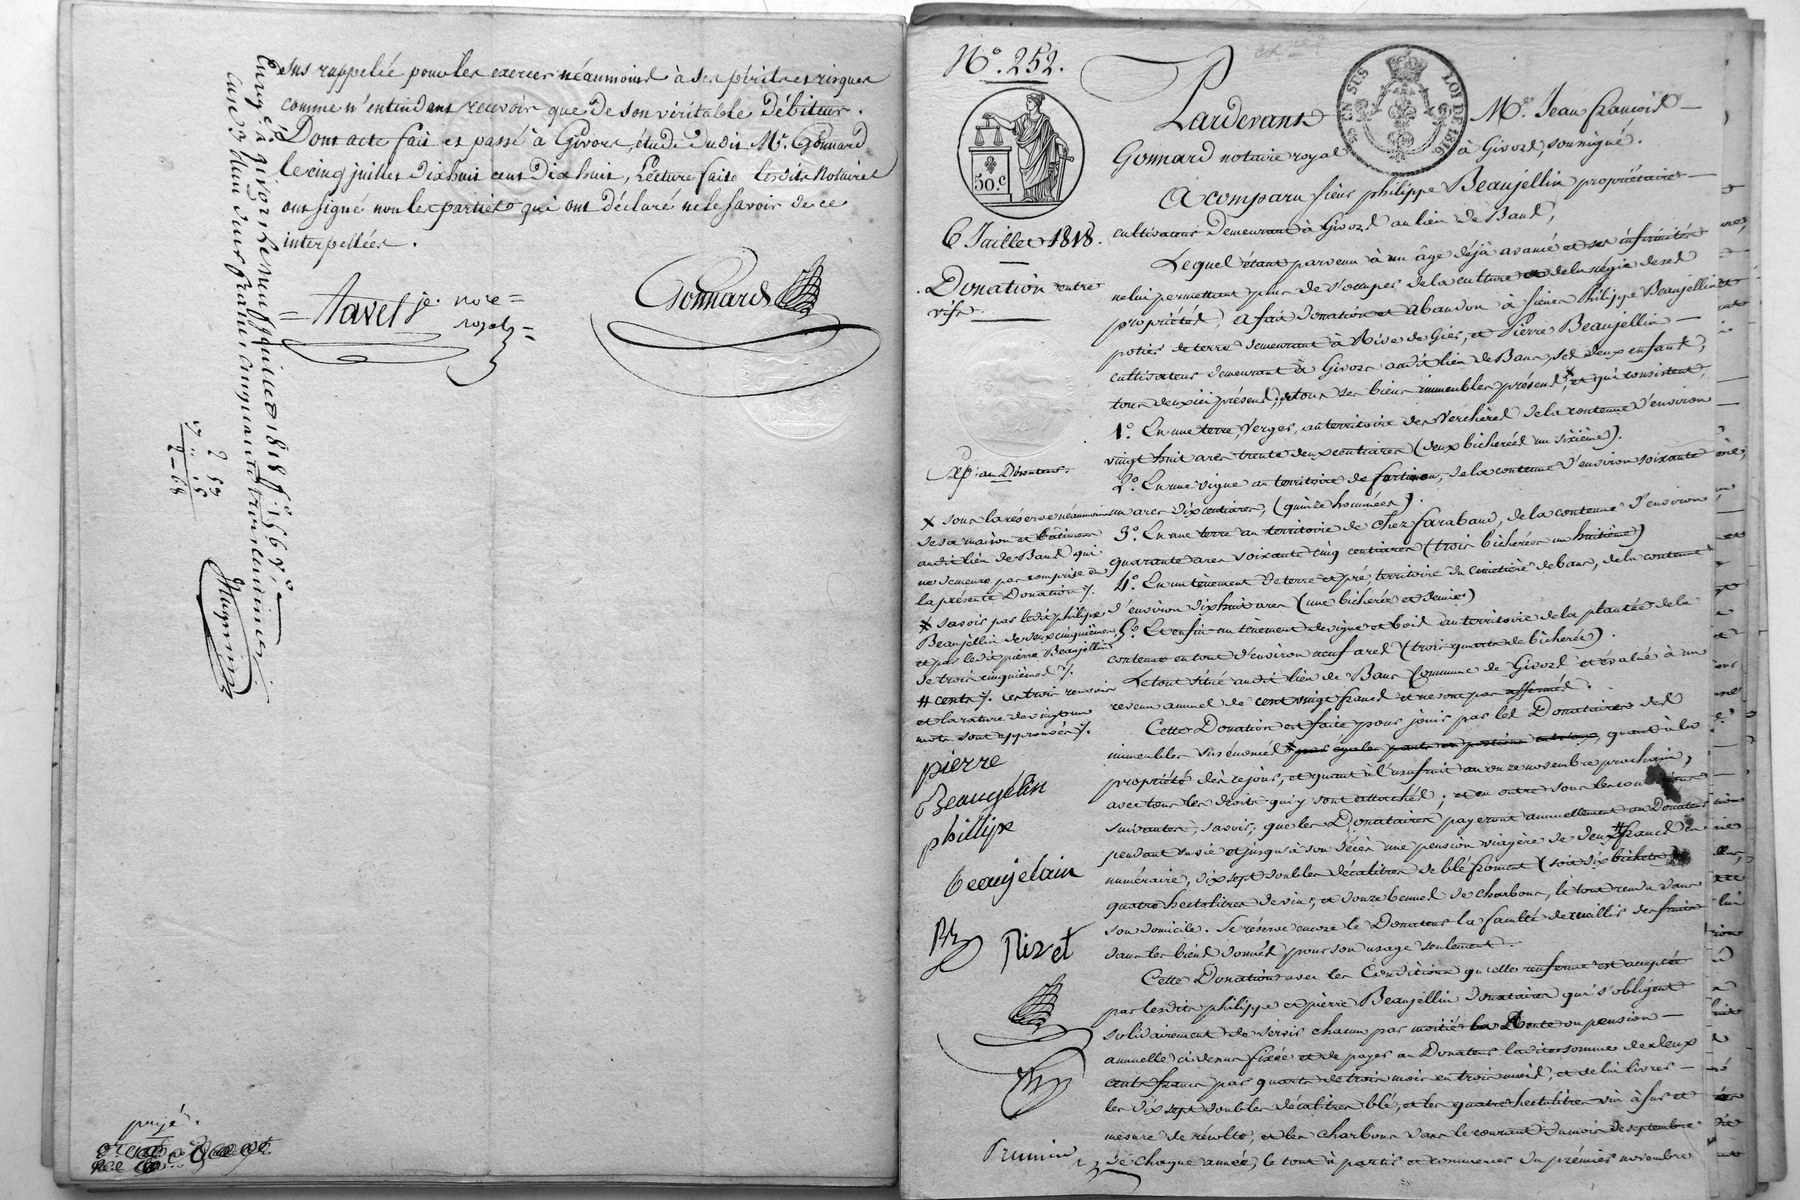 sus rappellée pour les exercer néaumoins à ses périls et risques
comme n'entendant recevoir que de son véritable Débiteur.
Dont acte fait et passé à Givors, étude dudit Me. Gonnard
le cinq juillet dixhuit cent dixhuit, Lecture faite lesdits Notaires
ont signé non les parties qui ont déclaré ne le savoir de ce
interpellées.
= Navet je. nore =
royal =
Gonnard
Enreg. à Givors le neuf juillet 1818 fo. 156 Vo.
case 3
deux francs cinquante trois centimes
payé.
No. 252.
EN SUS
LOI DE 1816
50.c
6 Juillet 1818.
Donation entre
vifs.
Exp: au Donateur.
Pardevant Me. Jean françois
Gonnard notaire royal à Givors, soussigné.
A comparu sieur philippe Beaujellin propriétaire
cultivateur demeurant à Givors au lieu de Bans,
Lequel étant parvenu à un âge déjà avancé et ses infirmités
ne lui permettant plus de s'occuper de la culture et de la régie de ses
propriétés, a fait donation et abandon à sieurs Philippe Beaujellin
potier de terre demeurant à Rive de Gier, et Pierre Beaujellin
cultivateur demeurant à Givors audit lieu de Bans, ses deux enfants,
tous deux ici présents, de tous ses biens immeubles présents * et qui consistent,
1o. En une terre, Verger, au territoire des Verchères de la contenue d'environ
vingt huit ares trente deux centiares (deux bicherées un sixième).
2o. En une vigne au territoire de , de la contenue d'environ soixante
un ares dix centiares, (quinze hommées).
3o. En une terre au territoire de chez farabaud, de la contenue d'environ
quarante ares soixante cinq centiares (trois bicherées un huitième)
4o. En un tènement de terre et pré, territoire du cimetière de bans, de la contenue
d'environ dixhuit ares (une bicherée et demie)
5o. Et enfin un tènement de vigne et bois au territoire de la plantée de la
contenue en tout d'environ neuf ares (trois quarts de bicherée).
Le tout situé audit lieu de Bans Commune de Givors et évalué à un
revenu annuel de cent vingt francs et ne sont pas affermés.
Cette Donation est faite pour jouir par les Donataires des
immeubles sus énoncés * par égales parts et portions entr'eux, quant à la
propriété dès ce jour, et quant à l'usufruit au onze novembre prochain,
avec tous les droits qui y sont attachés; et en outre sous les conditions
suivantes, savoir; que les Donataires payeront annuellement au Donateur
pendant sa vie et jusqu'à son décès une pension viagère de deux # francs en
numéraire, dix sept doubles décalitres de blé froment (soit six bichets)
quatre hectolitres de vin, et douze bennes de charbon, le tout rendu dans
son domicile. Se réserve encore le Donateur la faculté de cueillir des fruits
dans les biens donnés pour son usage seulement.
Cette Donation avec les Conditions qu'elle renferme est acceptée
par lesdits philippe et pierre Beaujellin donataires qui s'obligent
solidairement de servir chacun par moitié la Rente ou pension
annuelle ci devant fixée et de payer au Donateur ladite somme de deux
cents francs par quarts de trois mois en trois mois, et de lui livrer
les dix sept doubles décalitres blé, et les quatre hectolitres vin à fur et
mesure de récolte, et les charbons dans le courant du mois de septembre
de chaque année, le tout à partir et commencer du premier novembre
* sous la réserve néaumoins
de sa maison et bâtiments
audit lieu de Bans qui
ne demeure pas comprise en
la présente Donation /.
* savoir par ledit philippe
Beaujellin de deux cinquièmes
et par ledit pierre Beaujellin
de trois cinquièmes /.
# cents /. ces trois renvois
et la rature de vingt un
mots sont approuvés /.
pierre
Beaugelin
phillipe
beaujelain
Rivet